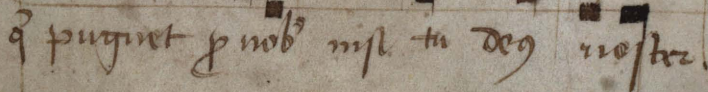 q̄ pugnet ꝓ nob᷒ nisi tu deꝰ noster.